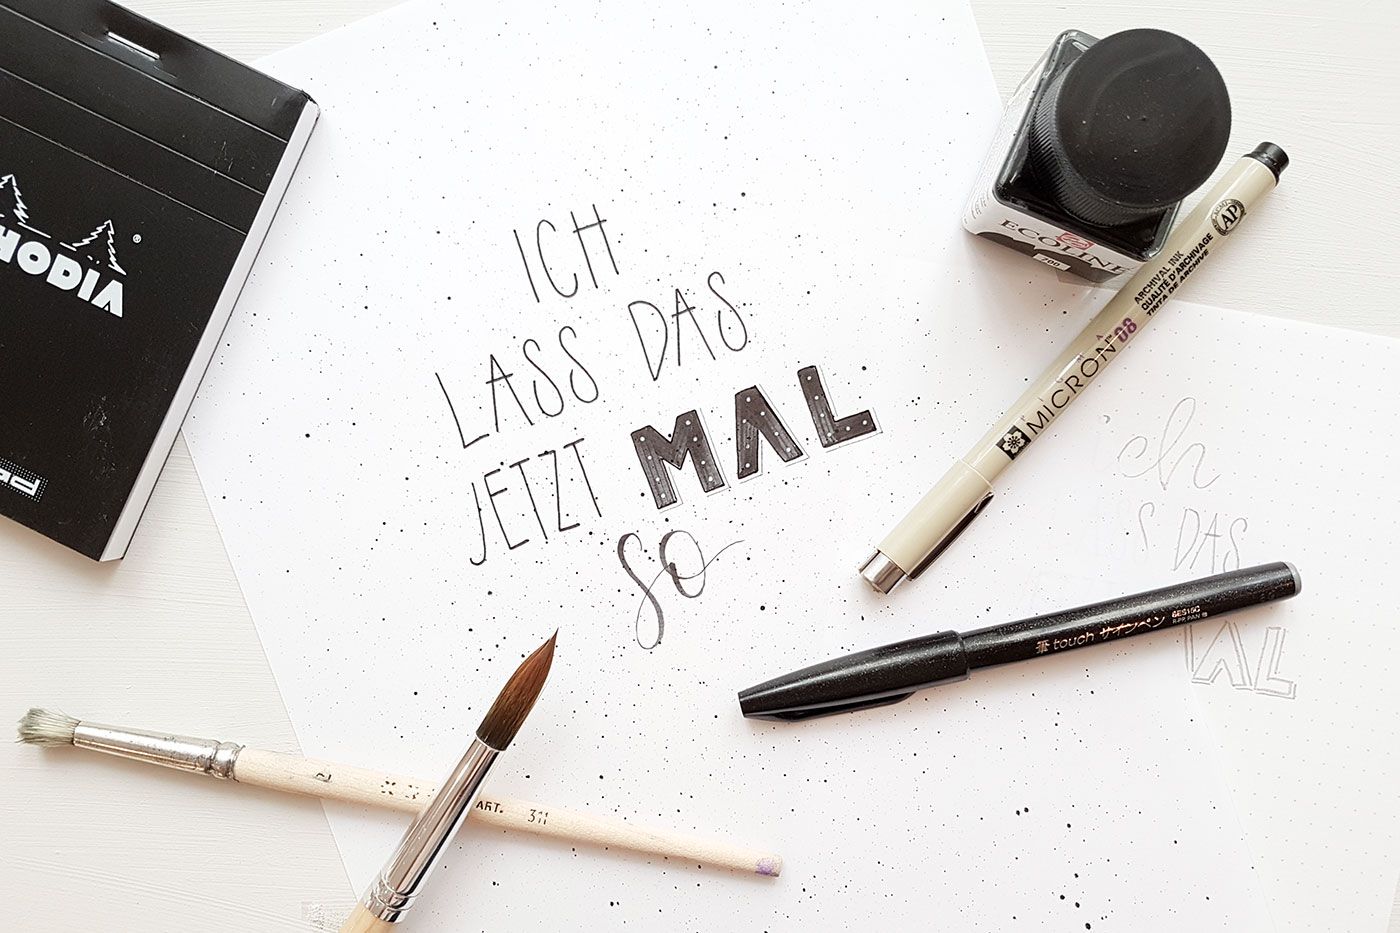 ICH
LASS DAS
JETZT MAL
SO
HODIA
®
ECOLINE
700
AP
ARCHIVAL INK
QUALITÉ D'ARCHIVAGE
TINTA DE ARCHIVE
MICRON 08
ich
DAS
MAL
touch サインペン
SES15C
ART. 311